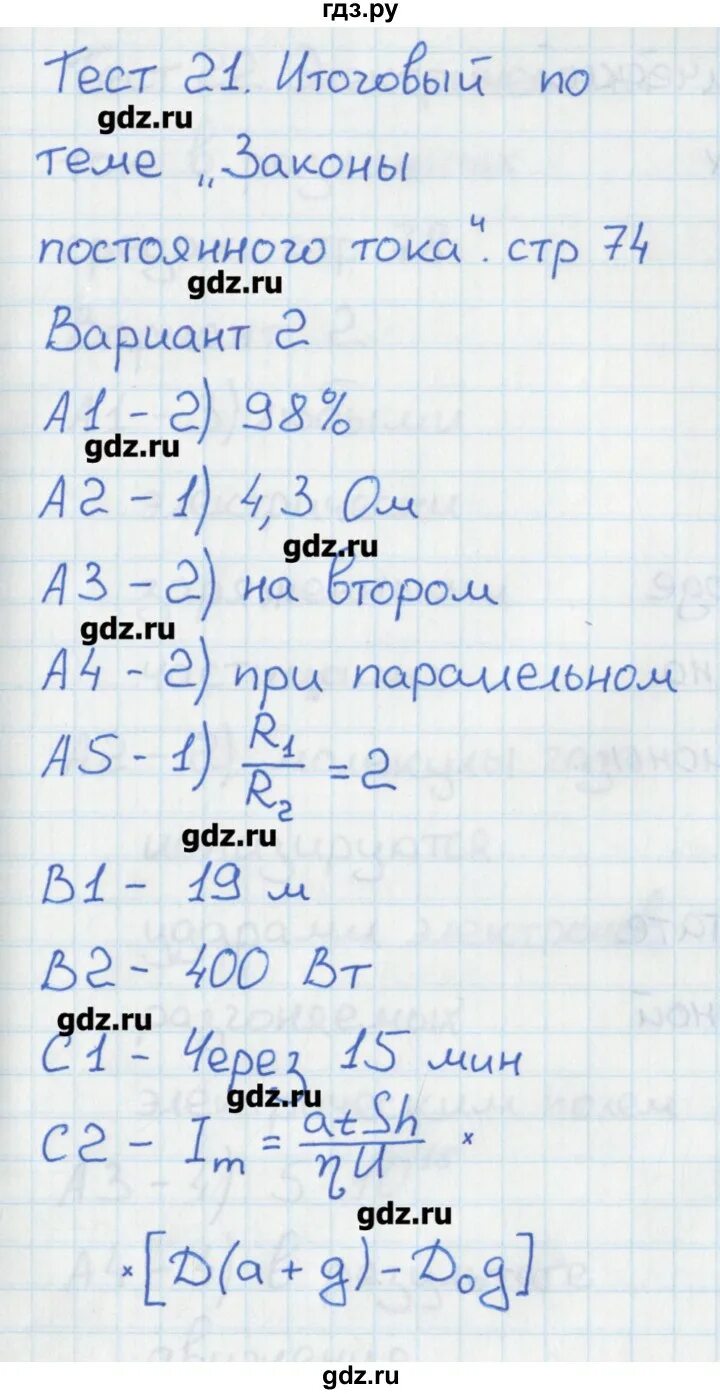 гдз.ру
Тест 21. Итоговый по
gdz.ru
теме „Законы
постоянного тока". стр 74
gdz.ru
Вариант 2
А1 - 2) 98%
gdz.ru
А2 - 1) 4,3 Ом
gdz.ru
А3 - 2) на втором
gdz.ru
А4 - 2) при параллельном
А5 - 1) R₁/R₂ = 2
gdz.ru
В1 - 19 м
В2 - 400 Вт
gdz.ru
С1 - Через 15 мин
gdz.ru
С2 - Iₘ = atSh/ηU ×
gdz.ru
× [D(a + g) - D₀g]
gdz.ru